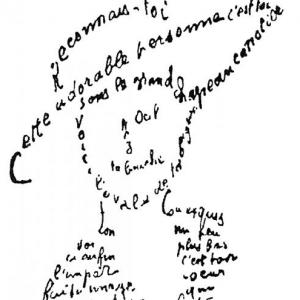 Reconnais-toi
Cette adorable personne c'est toi
sous le grand chapeau canotier
Oeil
Nez
la bouche
Voici l'ovale de ta figure
Ton
Cou exquis
Voi
ci enfin
l'impar
faite image
un peu
plus bas
c'est ton
coeur
qui